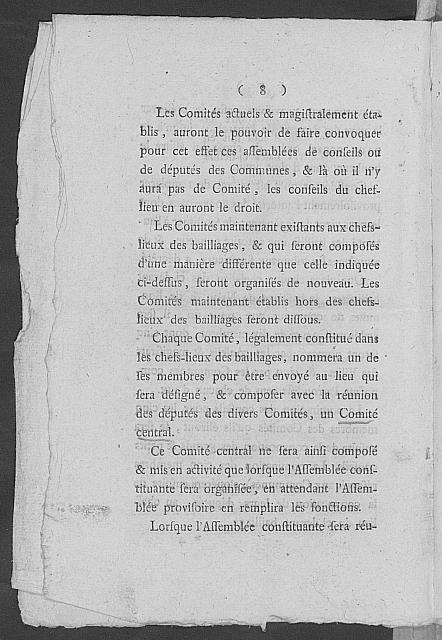 ( 8 )
Les Comités actuels & magiſtralement éta-
blis, auront le pouvoir de faire convoquer
pour cet effet ces aſſemblées de conſeils ou
de députés des Communes, & là où il n'y
aura pas de Comité, les conſeils du chef-
lieu en auront le droit.
Les Comités maintenant exiſtants aux chefs-
lieux des bailliages, & qui ſeront compoſés
d'une manière différente que celle indiquée
ci-deſſus, ſeront organiſés de nouveau. Les
Comités maintenant établis hors des chefs-
lieux des bailliages ſeront diſſous.
Chaque Comité, légalement conſtitué dans
les chefs-lieux des bailliages, nommera un de
ſes membres pour être envoyé au lieu qui
ſera déſigné, & compoſer avec la réunion
des députés des divers Comités, un Comité
central.
Ce Comité central ne ſera ainſi compoſé
& mis en activité que lorſque l'Aſſemblée conſ-
tituante ſera organiſée, en attendant l'Aſſem-
blée proviſoire en remplira les fonctions.
Lorſque l'Aſſemblée conſtituante ſera réu-